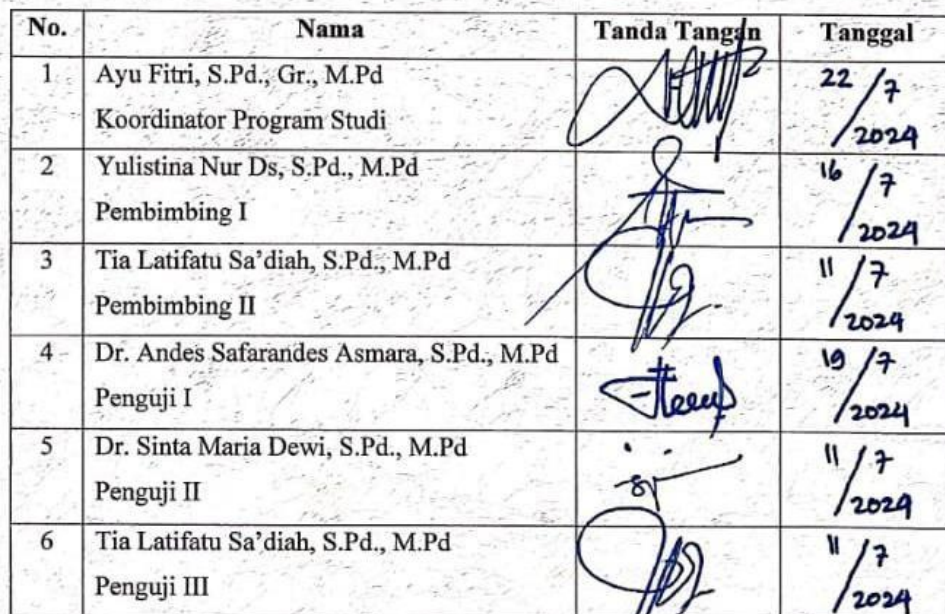 No. Nama Tanda Tangan Tanggal
1 Ayu Fitri, S.Pd., Gr., M.Pd 22/7
Koordinator Program Studi 2024
2 Yulistina Nur Ds, S.Pd., M.Pd 16/7
Pembimbing I 2024
3 Tia Latifatu Sa’diah, S.Pd., M.Pd 11/7
Pembimbing II 2024
4 Dr. Andes Safarandes Asmara, S.Pd., M.Pd 19/7
Penguji I 2024
5 Dr. Sinta Maria Dewi, S.Pd., M.Pd 11/7
Penguji II 2024
6 Tia Latifatu Sa’diah, S.Pd., M.Pd 11/7
Penguji III 2024